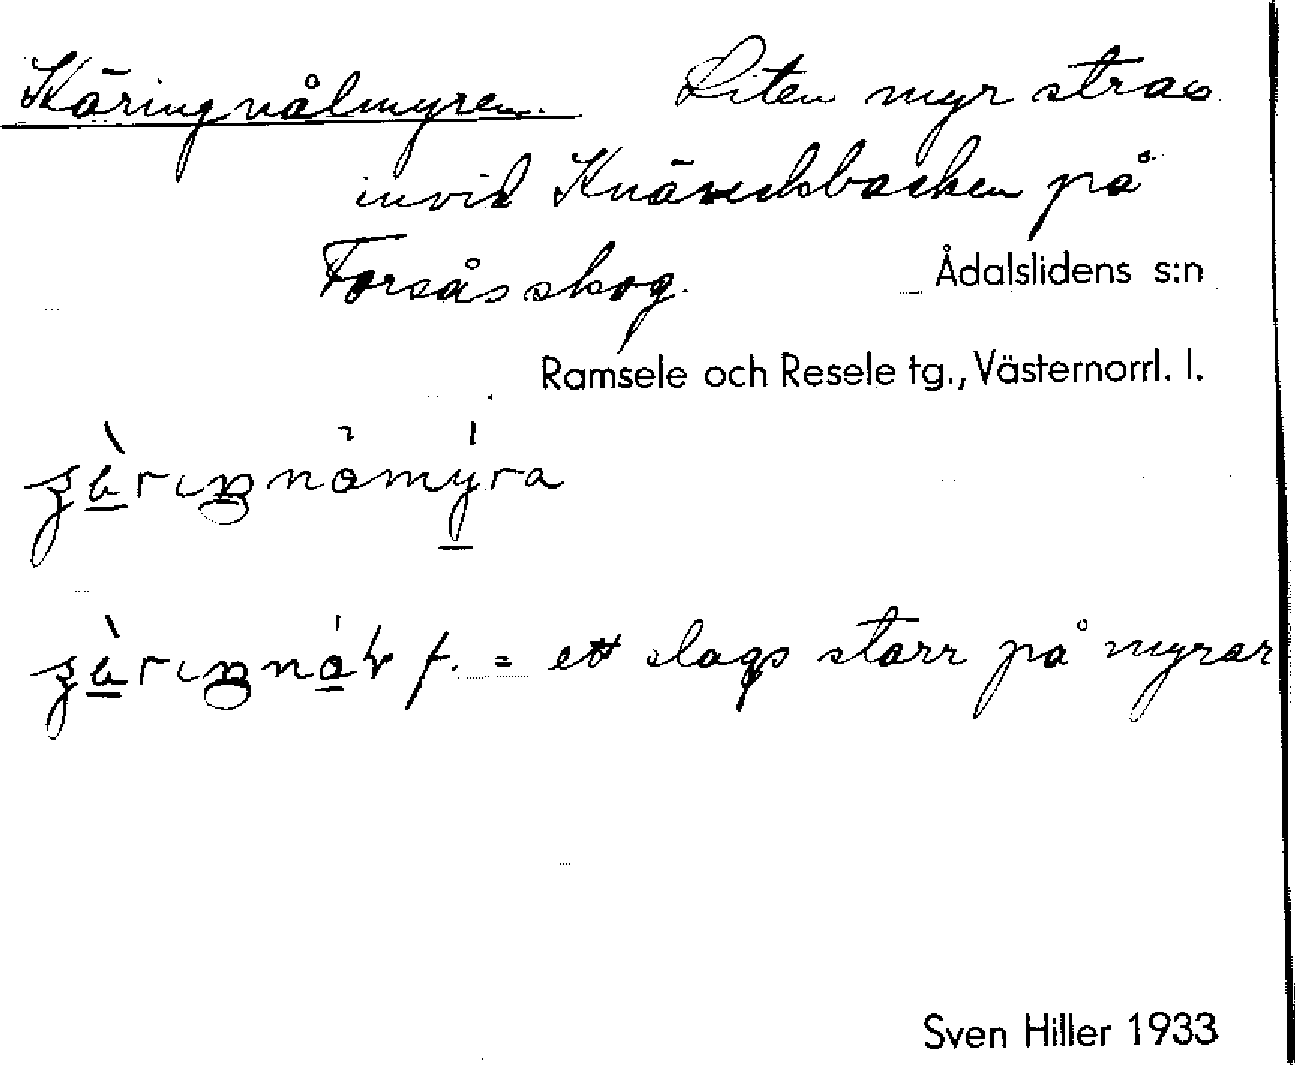 Käringnålmyren. Liten myr strax
invid Knäschbacken på
Forsås skog.
Ådalslidens s:n
Ramsele och Resele tg., Västernorrl. l.
f. = ett slags starr på myrar
Sven Hiller 1933